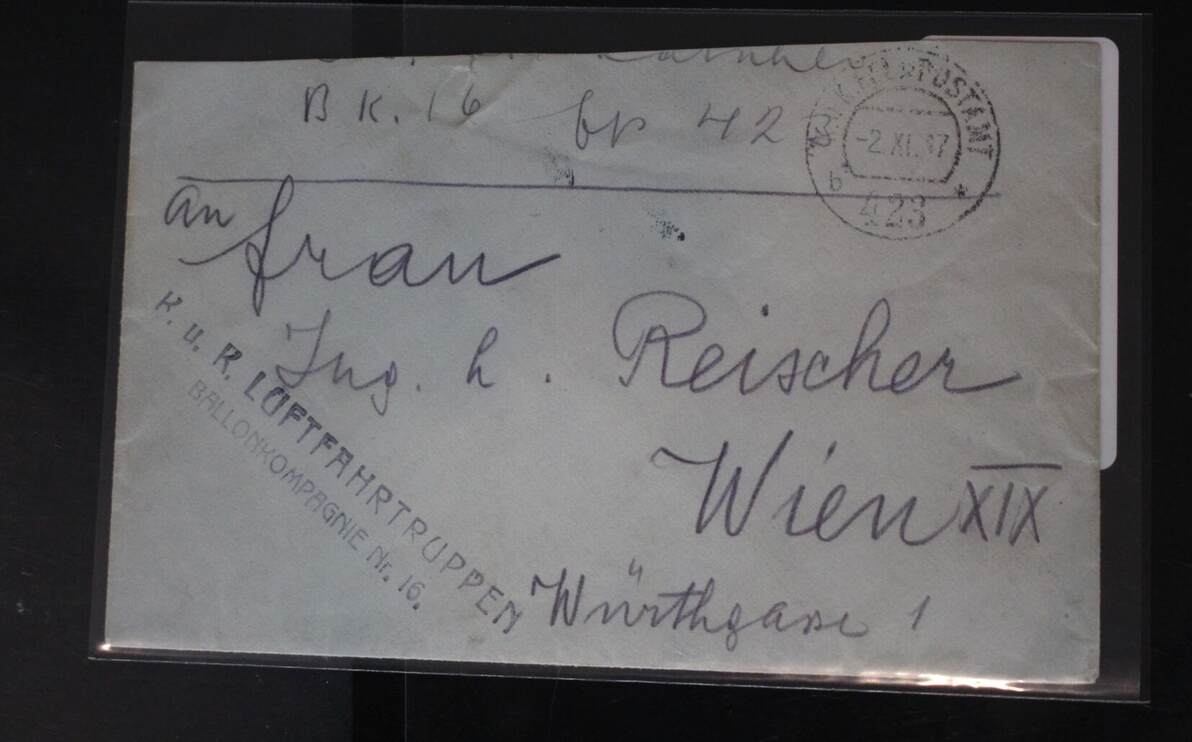 BK. 16 fp 42
K.u.K. FELDPOSTAMT
-2.XI.17
b *
423
an Frau
Ing. h. Reischer
Wien XIX
Würthgasse 1
K. u. K. LUFTFAHRTRUPPEN
BALLONKOMPAGNIE Nr. 16.